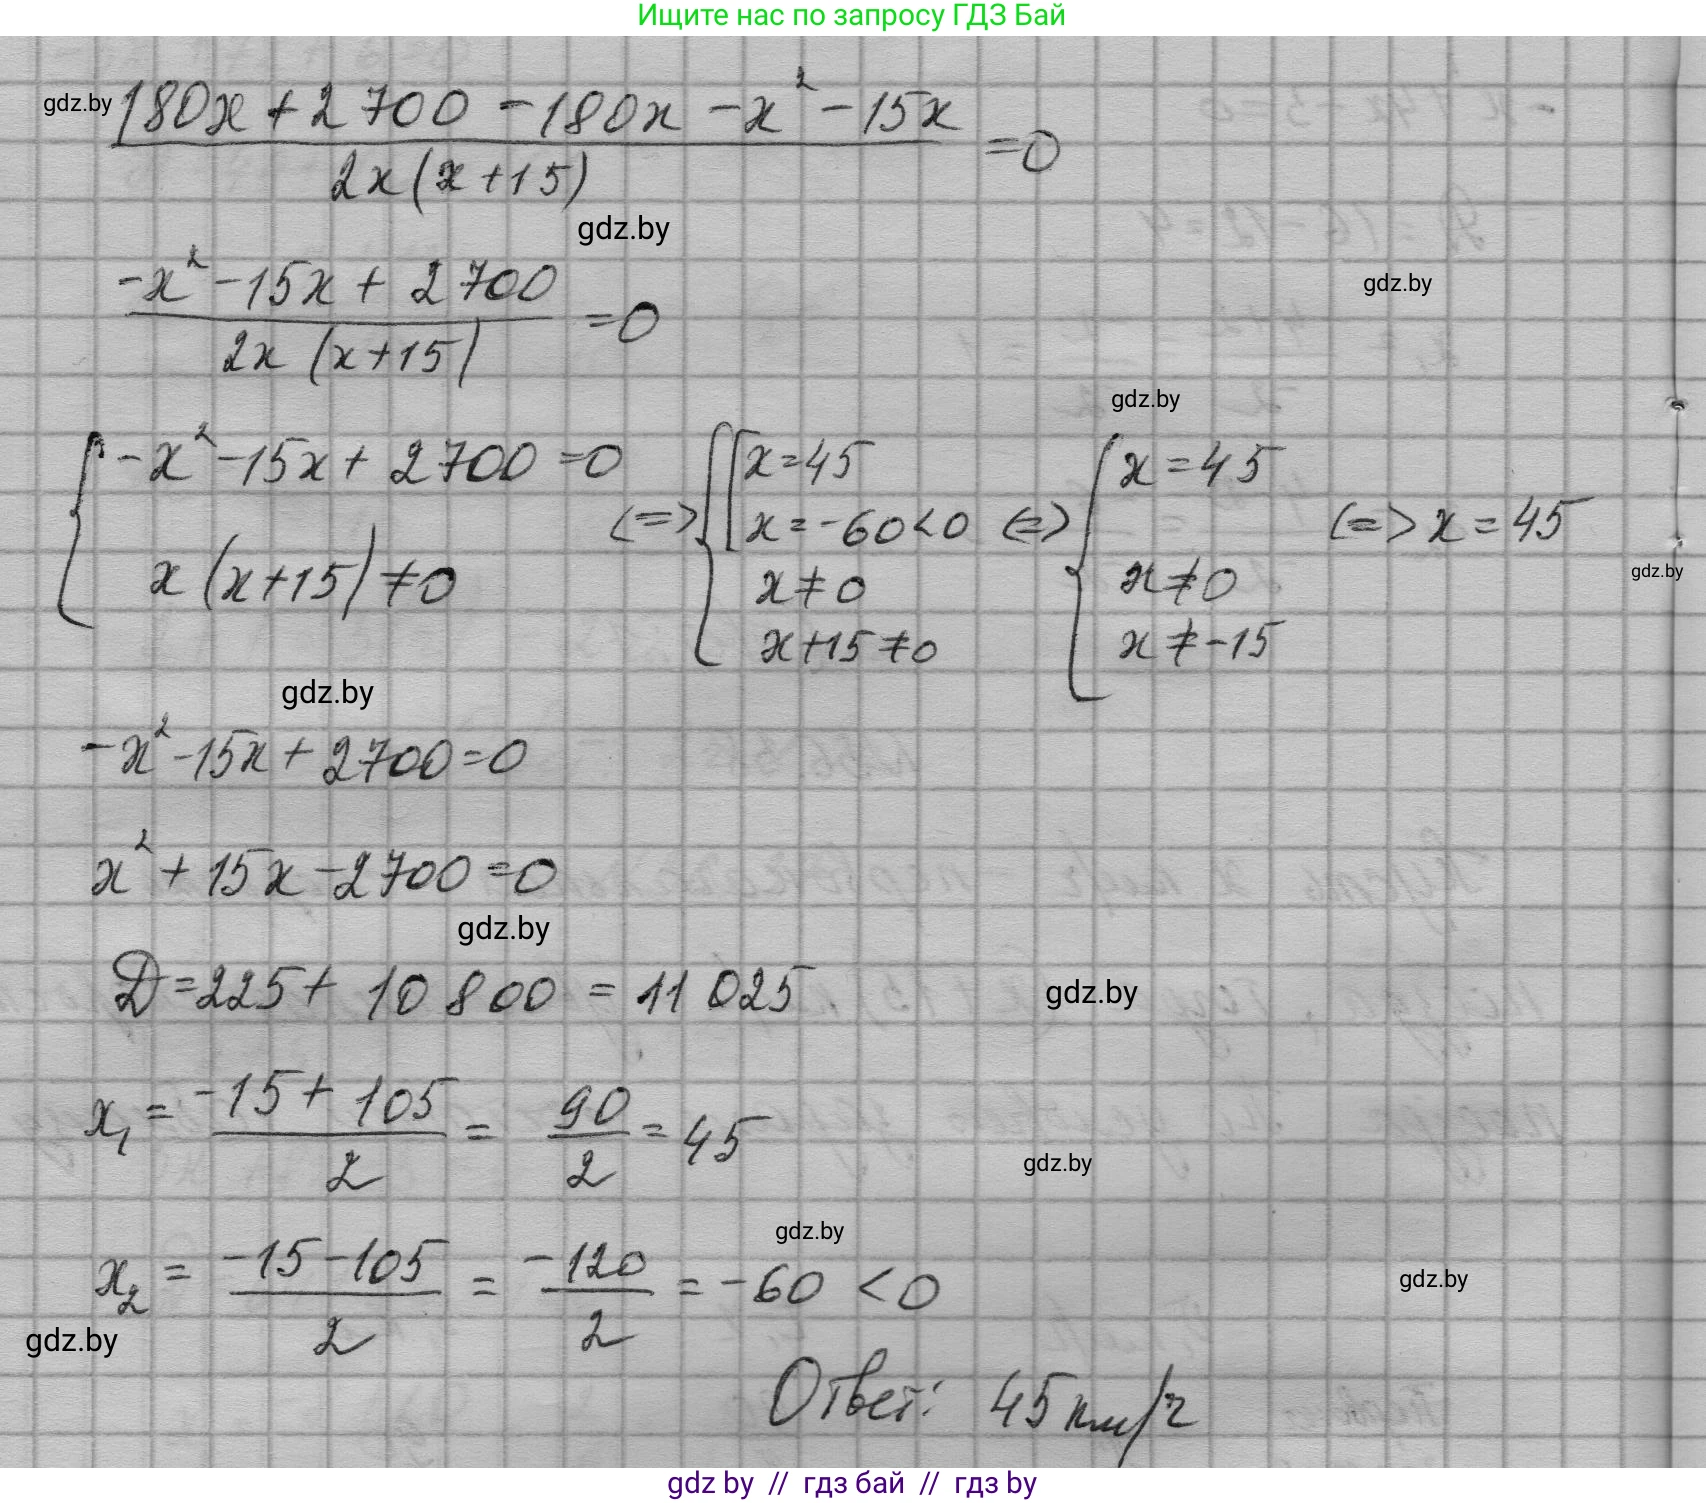 Ищите нас по запросу ГДЗ Бай
gdz.by
(180x + 2700 - 180x - x² - 15x) / (2x(x+15)) = 0
gdz.by
gdz.by
(-x² - 15x + 2700) / (2x(x+15)) = 0
gdz.by
{ -x² - 15x + 2700 = 0 <=> { [ x = 45 <=> { x = 45 <=> x = 45
x(x+15) ≠ 0 x = -60 < 0 x ≠ 0
x ≠ 0 x ≠ -15
x + 15 ≠ 0
gdz.by
gdz.by
-x² - 15x + 2700 = 0
x² + 15x - 2700 = 0
gdz.by
D = 225 + 10 800 = 11 025
gdz.by
x₁ = (-15 + 105) / 2 = 90 / 2 = 45
gdz.by
gdz.by
x₂ = (-15 - 105) / 2 = -120 / 2 = -60 < 0
gdz.by
gdz.by
Ответ: 45 км/ч
gdz by // гдз бай // гдз by